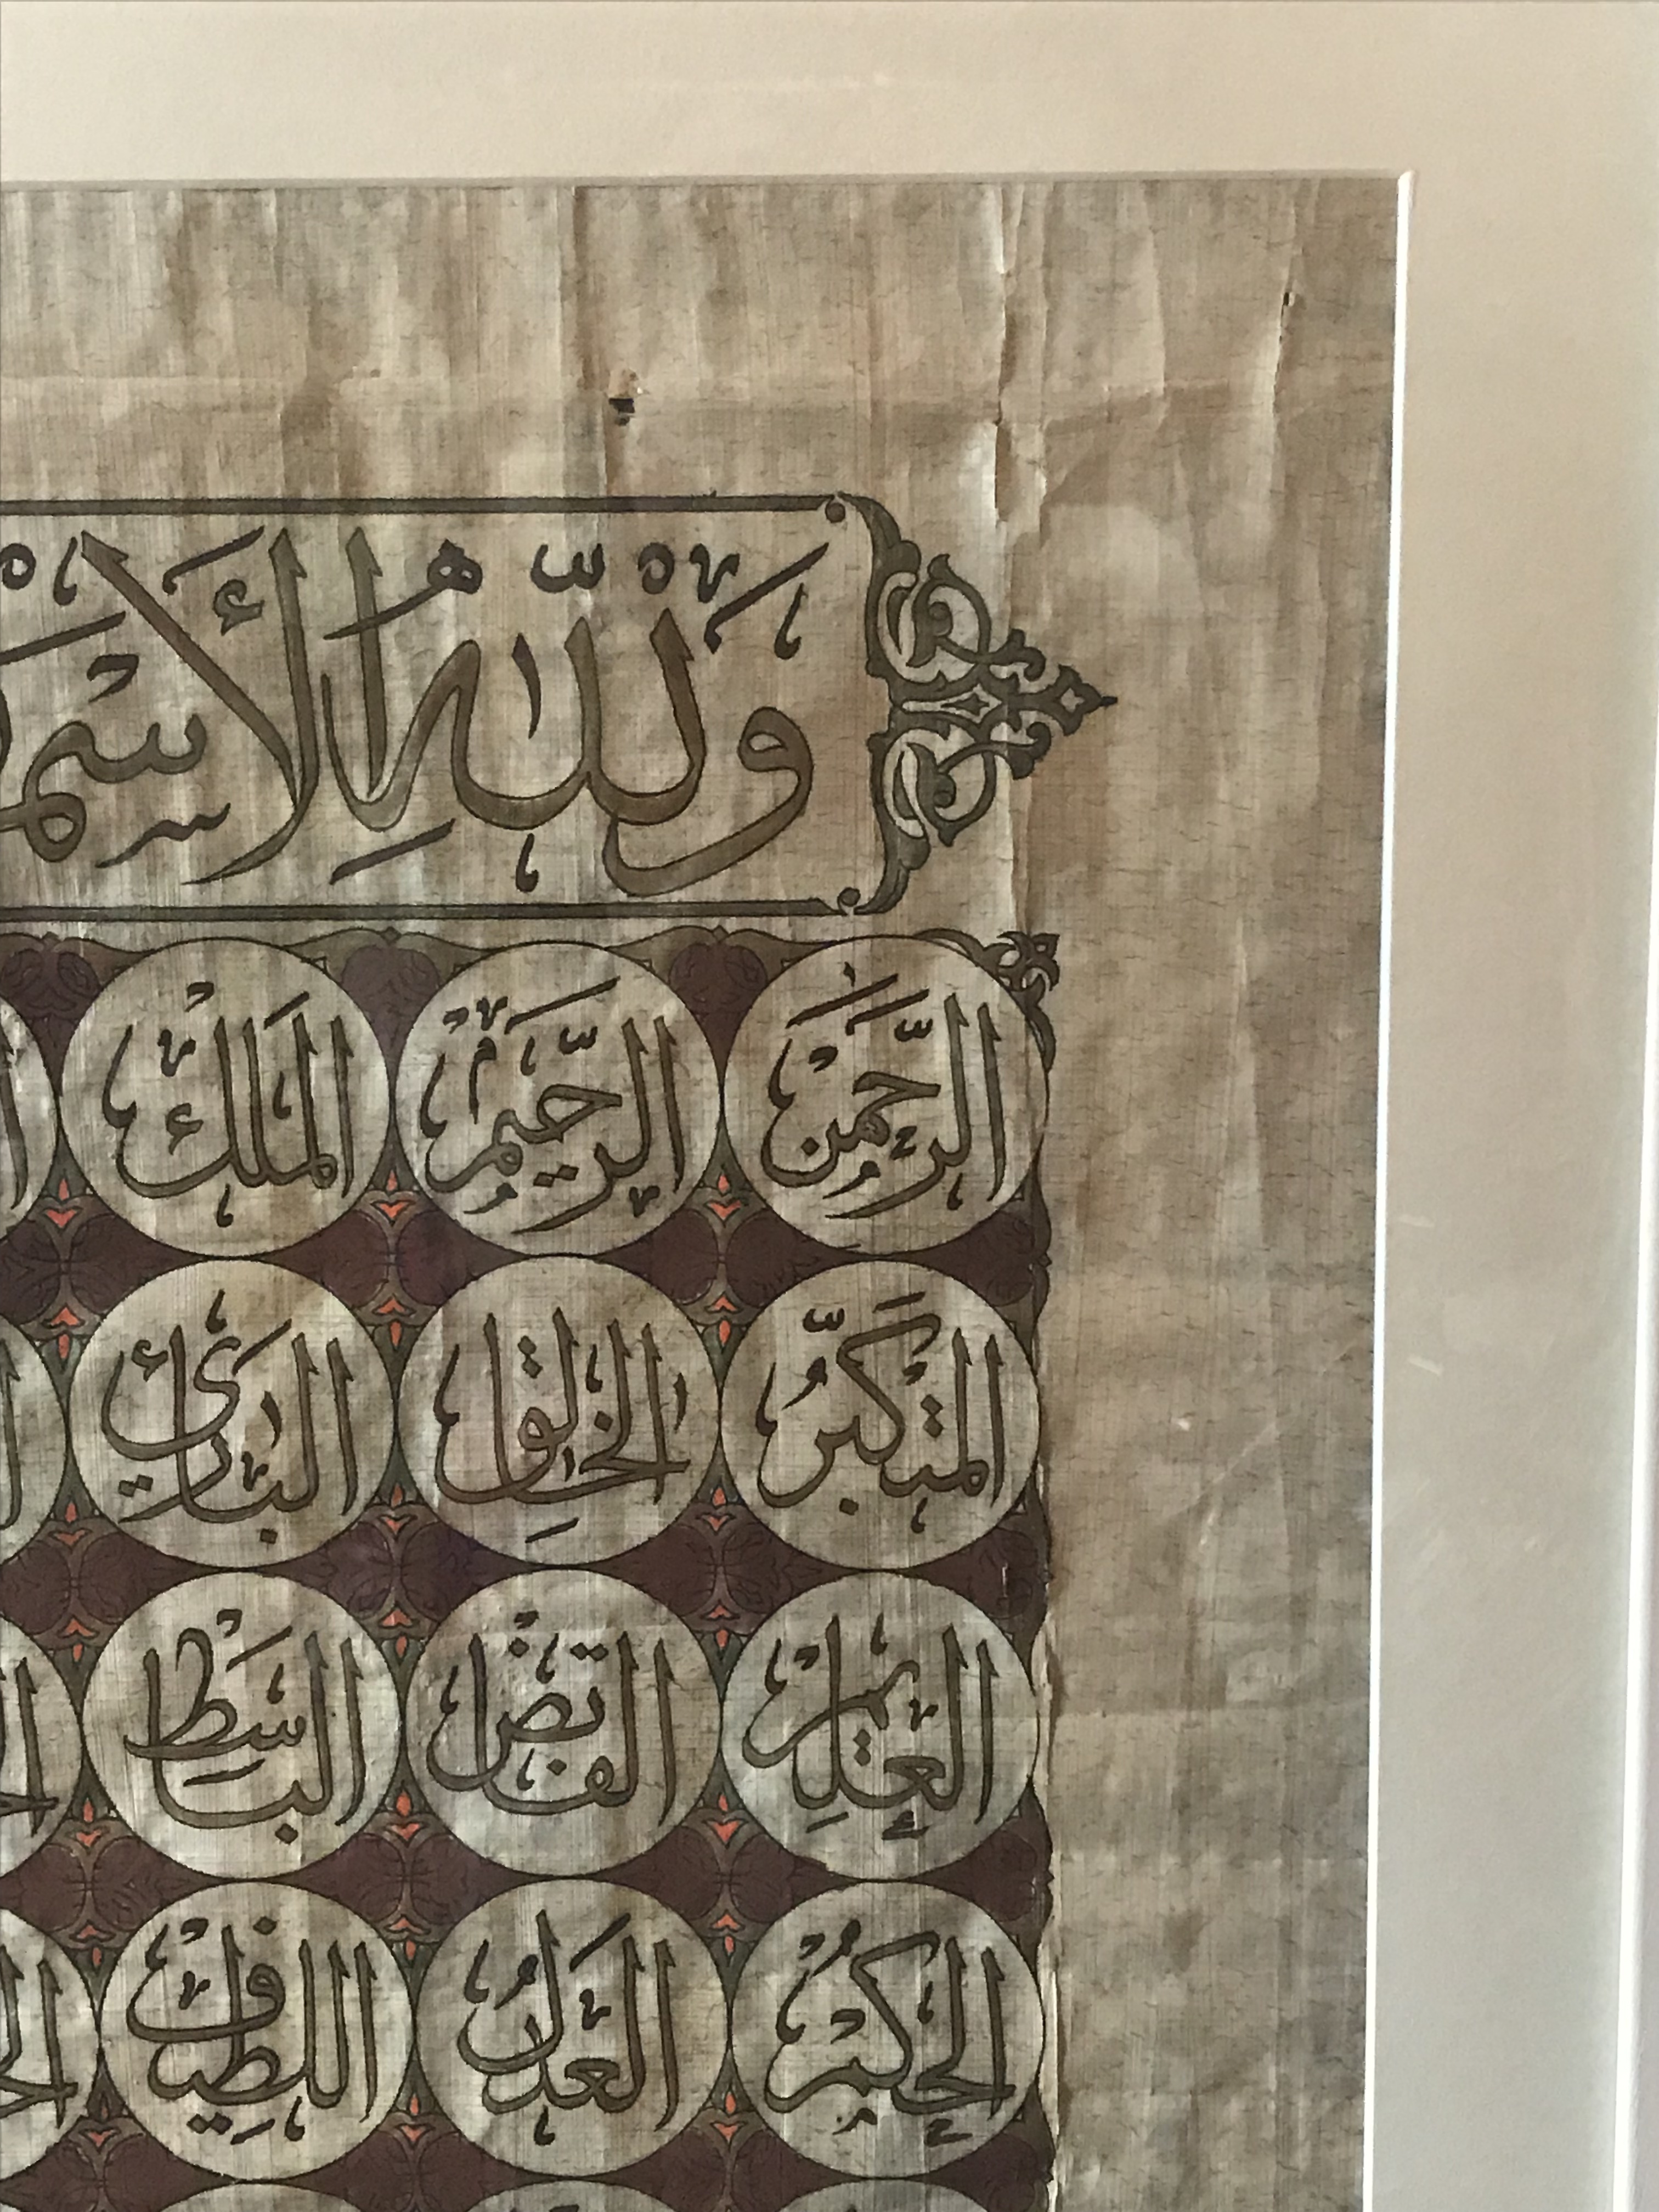 وَلِلَّهِ الْأَسْم
الرَّحْمٰنُ الرَّحِيمُ الْمَلِكُ
الْمُتَكَبِّرُ الْخَالِقُ الْبَارِئُ
الْعَلِيمُ الْقَابِضُ الْبَاسِطُ
الْحَكَمُ الْعَدْلُ اللَّطِيفُ